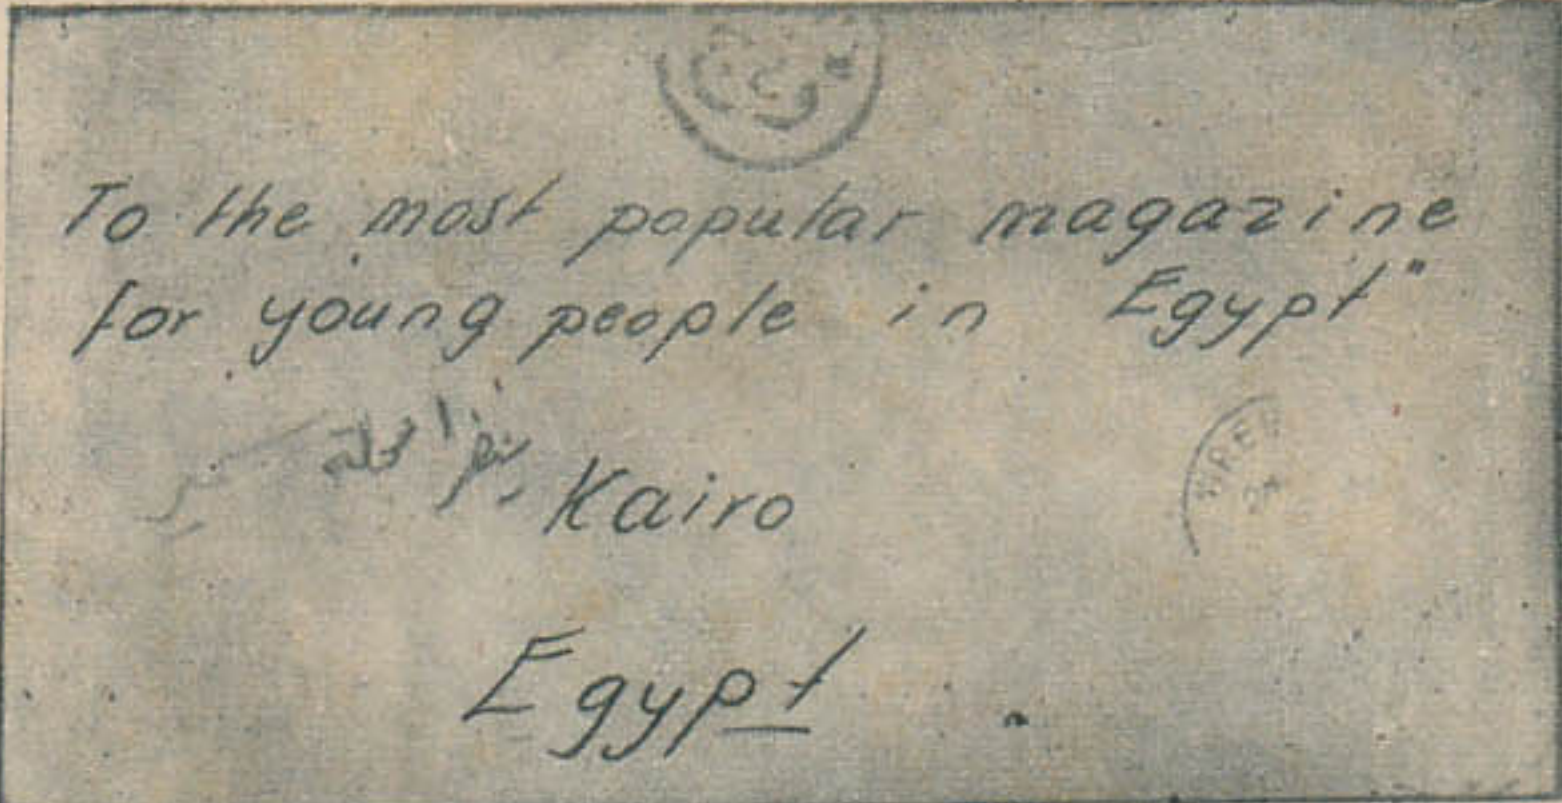 To the most popular magazine
for young people in Egypt"
Kairo
Egypt